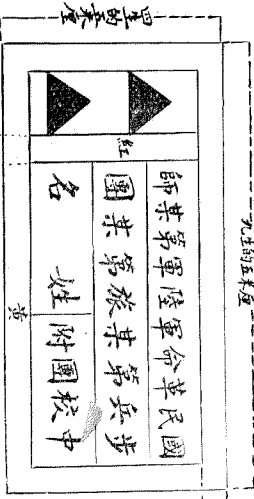 四生的五米厘
九生的五米厘
國民革命軍陸軍第某師
步兵第某旅第某團
中校團附 姓名
紅
黃